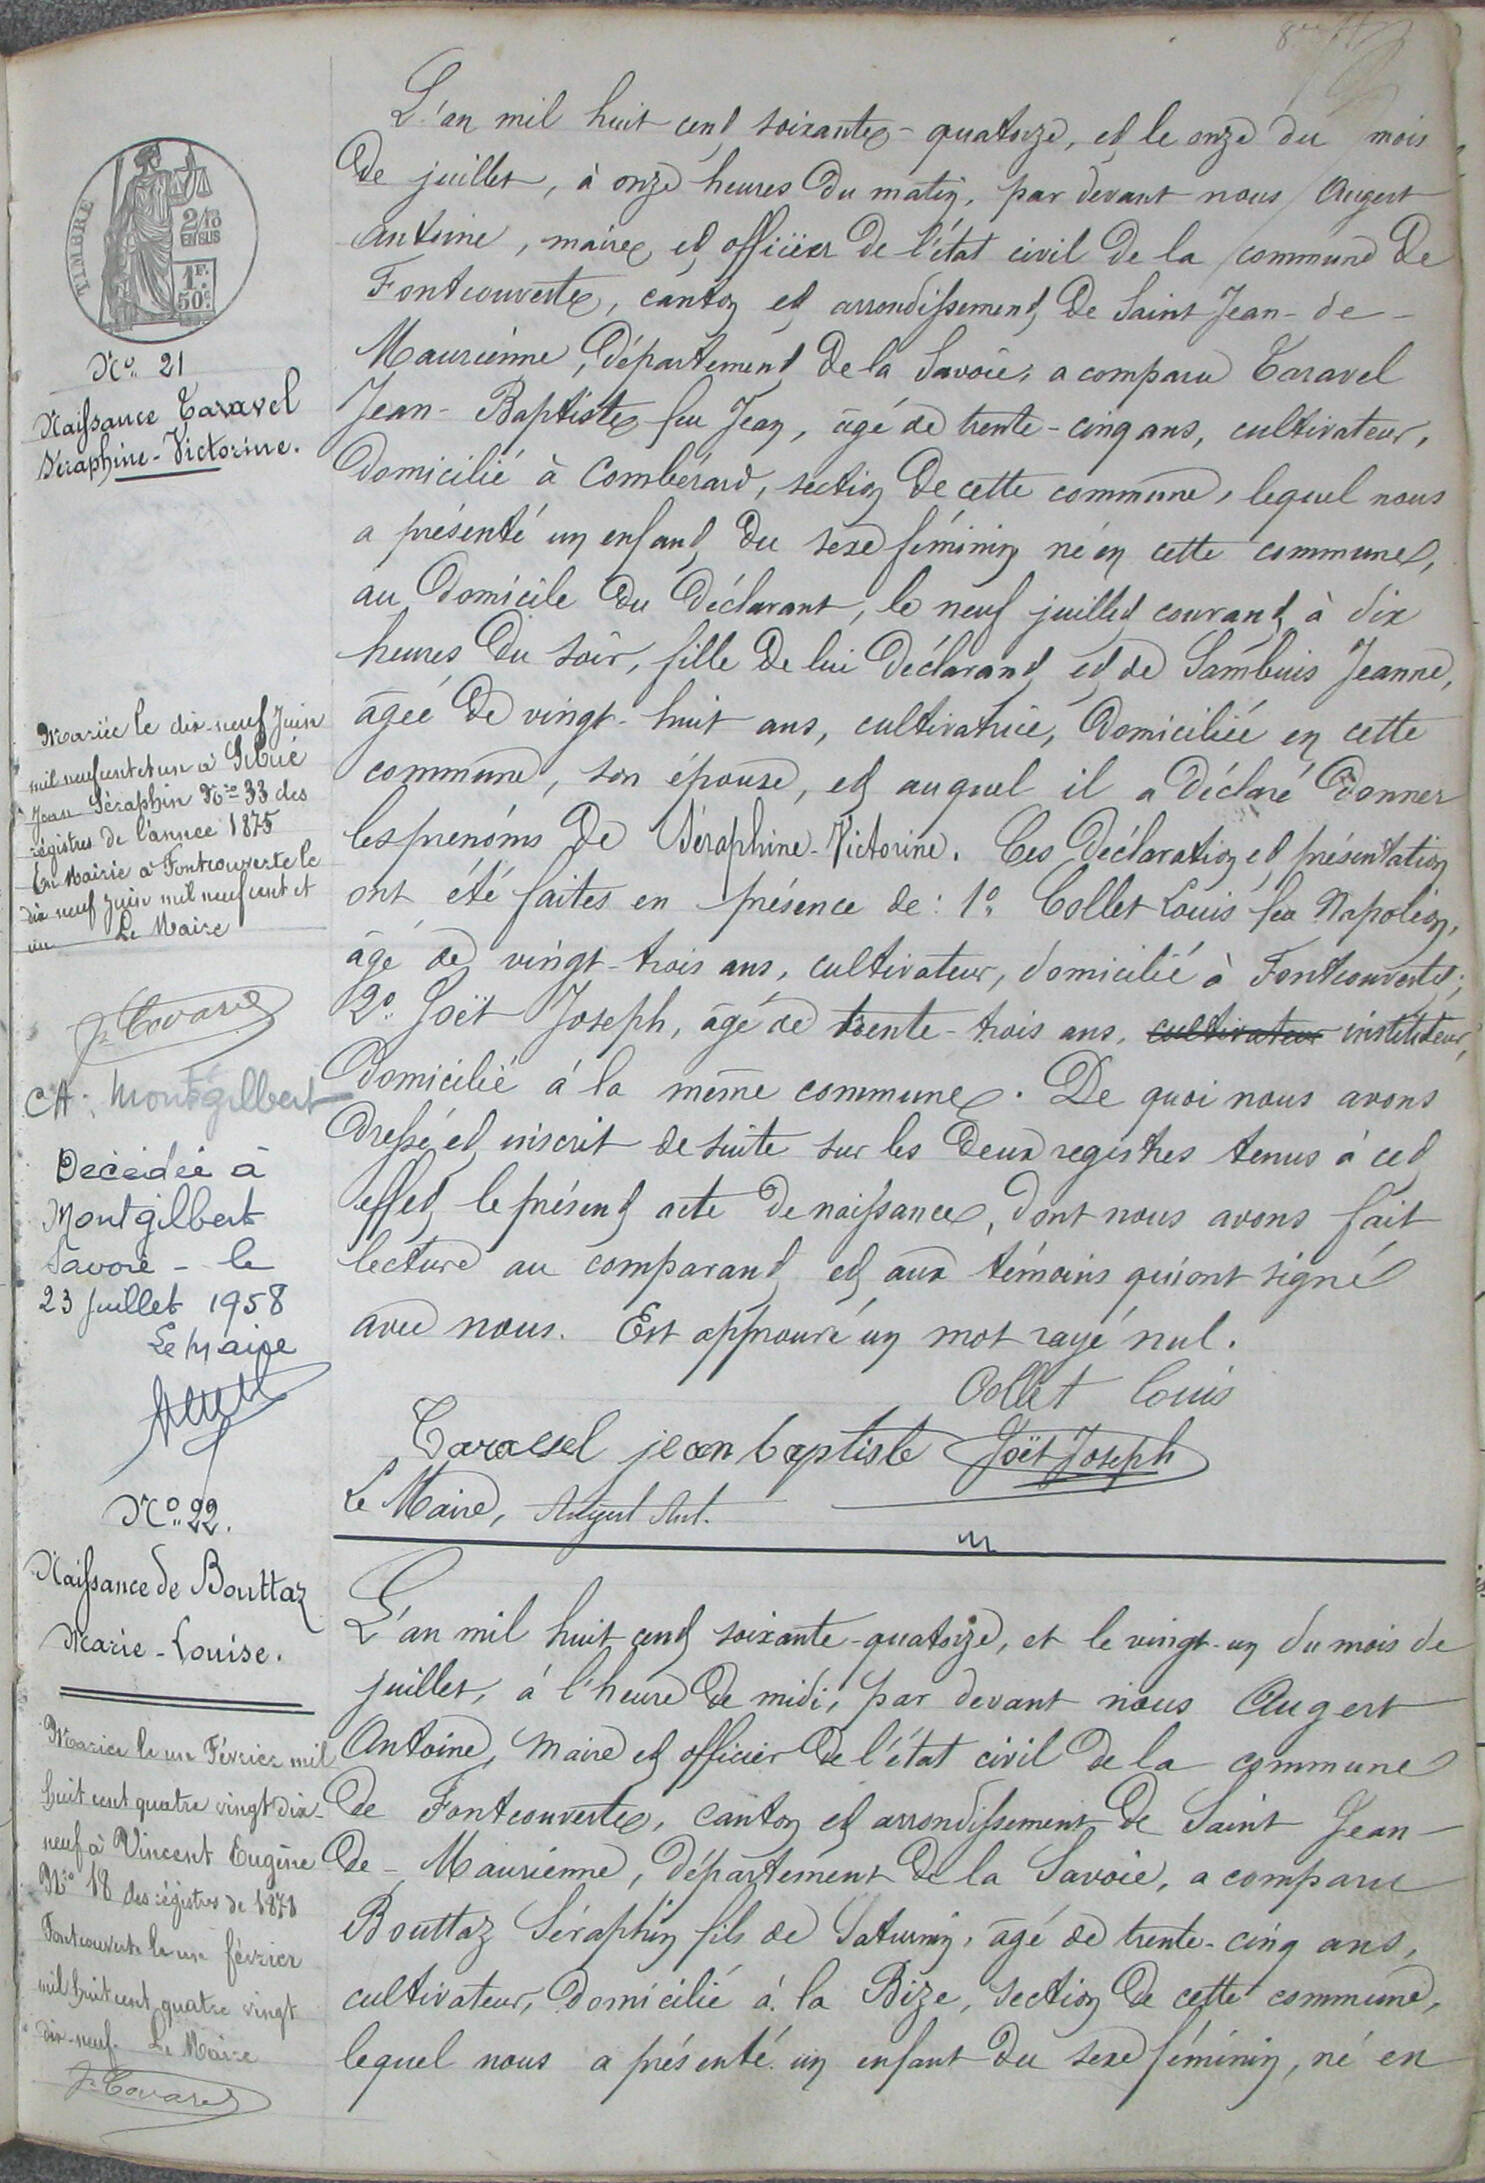 8
TIMBRE
2/10
EN SUS
1F.
50c.
N° 21
Naissance Taravel
Séraphine-Victorine.
L'an mil huit cent soixante-quatorze, et le onze du mois
de juillet, à onze heures du matin, par devant nous Augert
Antoine, maire et officier de l'état civil de la commune de
Fontcouverte, canton et arrondissement de Saint Jean-de-
Maurienne, département de la Savoie, a comparu Taravel
Jean-Baptiste feu Jean, âgé de trente-cinq ans, cultivateur,
domicilié à Combérard, section de cette commune, lequel nous
a présenté un enfant du sexe féminin né en cette commune,
au domicile du déclarant, le neuf juillet courant à dix
heures du soir, fille de lui déclarant et de Sambuis Jeanne,
âgée de vingt-huit ans, cultivatrice, domiciliée en cette
commune, son épouse, et auquel il a déclaré donner
les prenoms de Séraphine-Victorine. Ces déclaration et présentation
ont été faites en présence de: 1° Collet Louis feu Napoléon,
âgé de vingt-trois ans, cultivateur, domicilié à Fontcouverte;
2° Joët Joseph, âgé de trente-trois ans, cultivateur instituteur,
domicilié à la même commune. De quoi nous avons
dressé et inscrit de suite sur les deux registres tenus à cet
effet le présent acte de naissance, dont nous avons fait
lecture au comparant et aux témoins qui ont signé
avec nous. Est approuvé un mot rayé nul.
Collet Louis
Taravel jean baptiste Joët Joseph
Le Maire, Augert Ant.
Mariée le dix-neuf Juin
mil neuf cent et un à
Jean Séraphin N° 33 des
régistres de l'année 1875
En Mairie à Fontcouverte le
dix neuf juin mil neuf cent et
un Le Maire
CA: Montgilbert
Décédée à
Montgilbert
Savoie - le
23 juillet 1958
Le Maire
N° 22.
Naissance de Bouttaz
Marie-Louise.
L'an mil huit cent soixante-quatorze, et le vingt-un du mois de
juillet, à l'heure de midi, par devant nous Augert
Antoine, Maire et officier de l'état civil de la commune
de Fontcouverte, canton et arrondissement de Saint Jean-
de-Maurienne, département de la Savoie, a comparu
Bouttaz Séraphin fils de Saturnin, âgé de trente-cinq ans,
cultivateur, domicilié à la Bize, section de cette commune,
lequel nous a présenté un enfant du sexe féminin, né en
Mariée le un Février mil
huit cent quatre vingt dix-
neuf à Vincent Eugène
N° 18 des régistres de 1871
Fontcouverte le un février
mil huit cent quatre vingt
dix-neuf. Le Maire